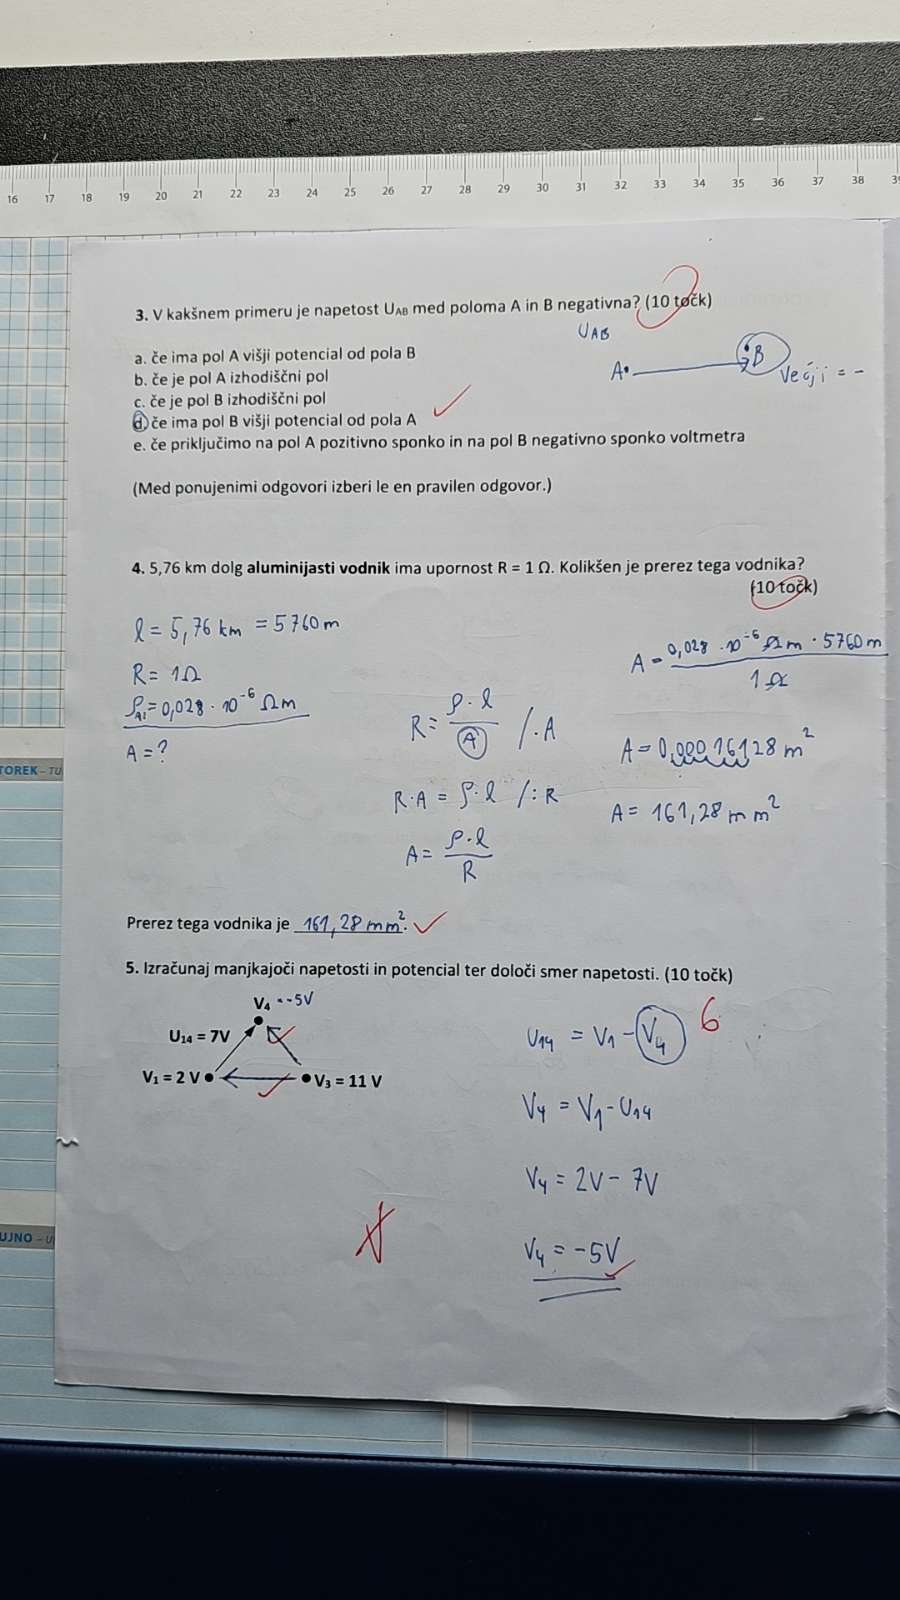 16 17 18 19 20 21 22 23 24 25 26 27 28 29 30 31 32 33 34 35 36 37 38 39
3. V kakšnem primeru je napetost UAB med poloma A in B negativna? (10 točk)
UAB
a. če ima pol A višji potencial od pola B
b. če je pol A izhodiščni pol
c. če je pol B izhodiščni pol
d. če ima pol B višji potencial od pola A
e. če priključimo na pol A pozitivno sponko in na pol B negativno sponko voltmetra
A B večji = -
(Med ponujenimi odgovori izberi le en pravilen odgovor.)
4. 5,76 km dolg aluminijasti vodnik ima upornost R = 1 Ω. Kolikšen je prerez tega vodnika?
(10 točk)
l = 5,76 km = 5760 m
R = 1Ω
ρAl = 0,028 · 10⁻⁶ Ωm
A = ?
R = ρ · l / A /· A
R · A = ρ · l /: R
A = ρ · l / R
A = 0,028 · 10⁻⁶ Ωm · 5760 m / 1Ω
A = 0,00016128 m²
A = 161,28 mm²
TOREK – TU
Prerez tega vodnika je 161,28 mm².
5. Izračunaj manjkajoči napetosti in potencial ter določi smer napetosti. (10 točk)
V4 = -5V
U14 = 7V
V1 = 2 V
V3 = 11 V
6
U14 = V1 - V4
V4 = V1 - U14
V4 = 2V - 7V
V4 = -5V
UJNO – U